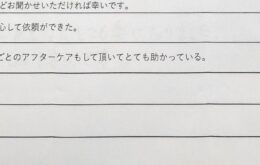 どお聞かせいただければ幸いです。
心して依頼ができた。
ごとのアフターケアもして頂いてとても助かっている。